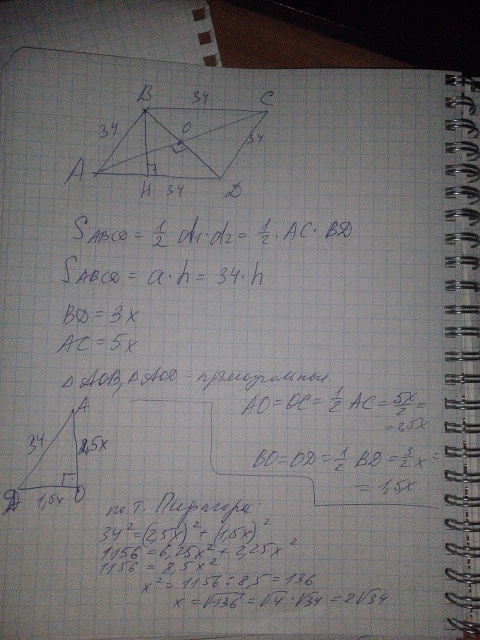 B 34 C
34 O 34
A H 34 D
S ABCD = 1/2 d1·d2 = 1/2 · AC · BD
S ABCD = a·h = 34·h
BD = 3x
AC = 5x
△AOB, △AOD -
A
34 2,5x
1,5x O
AO = OC = 1/2 AC = 5x/2 =
= 2,5x
BO = OD = 1/2 BD = 3/2 x =
= 1,5x
по т. Пифагора:
34² = (2,5x)² + (1,5x)²
1156 = 6,25x² + 2,25x²
1156 = 8,5x²
x² = 1156 : 8,5 = 136
x = √136 = √4 · √34 = 2√34